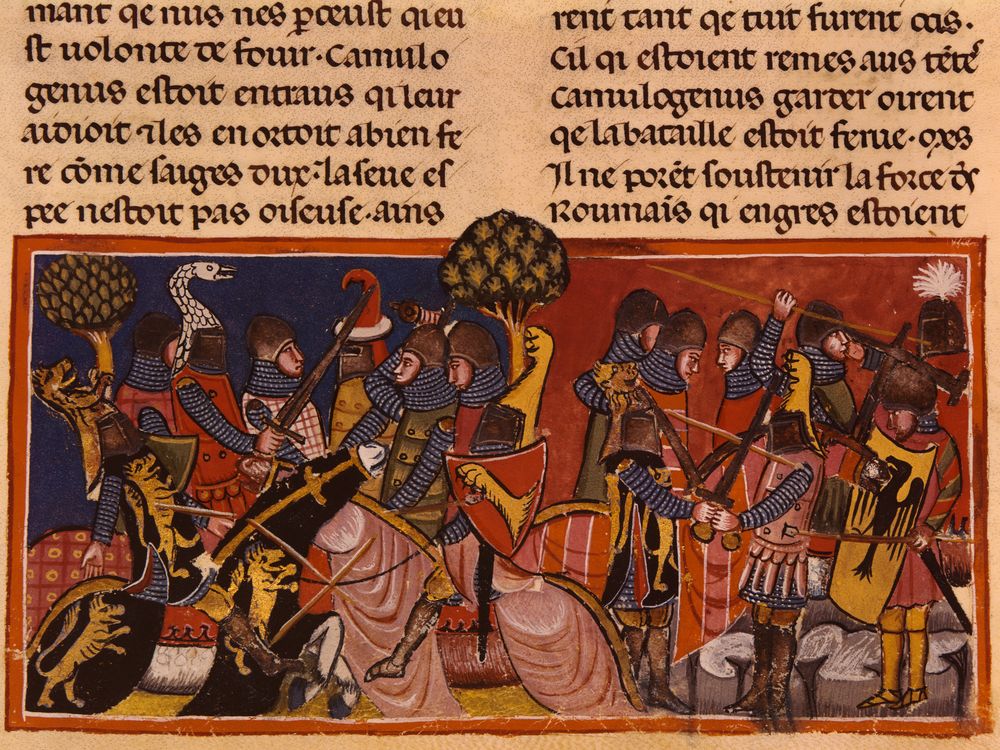 mant qe nus nes ꝑceust qi eu
st uolonte de fouir · Camulo
genus estoit entraus qi leur
aidioit ⁊ les enortoit a bien fe
re cōme saiges dux · ⁊ la seue es
pee nestoit pas oiseuse · ains
rent tant qe tuit furent ocis.
Cil qi estoient remes aus
Camulogenus garder oirent
qe la bataille estoit ferue · mes
Il ne porēt soustenir la force
Roumains qi engres estoient